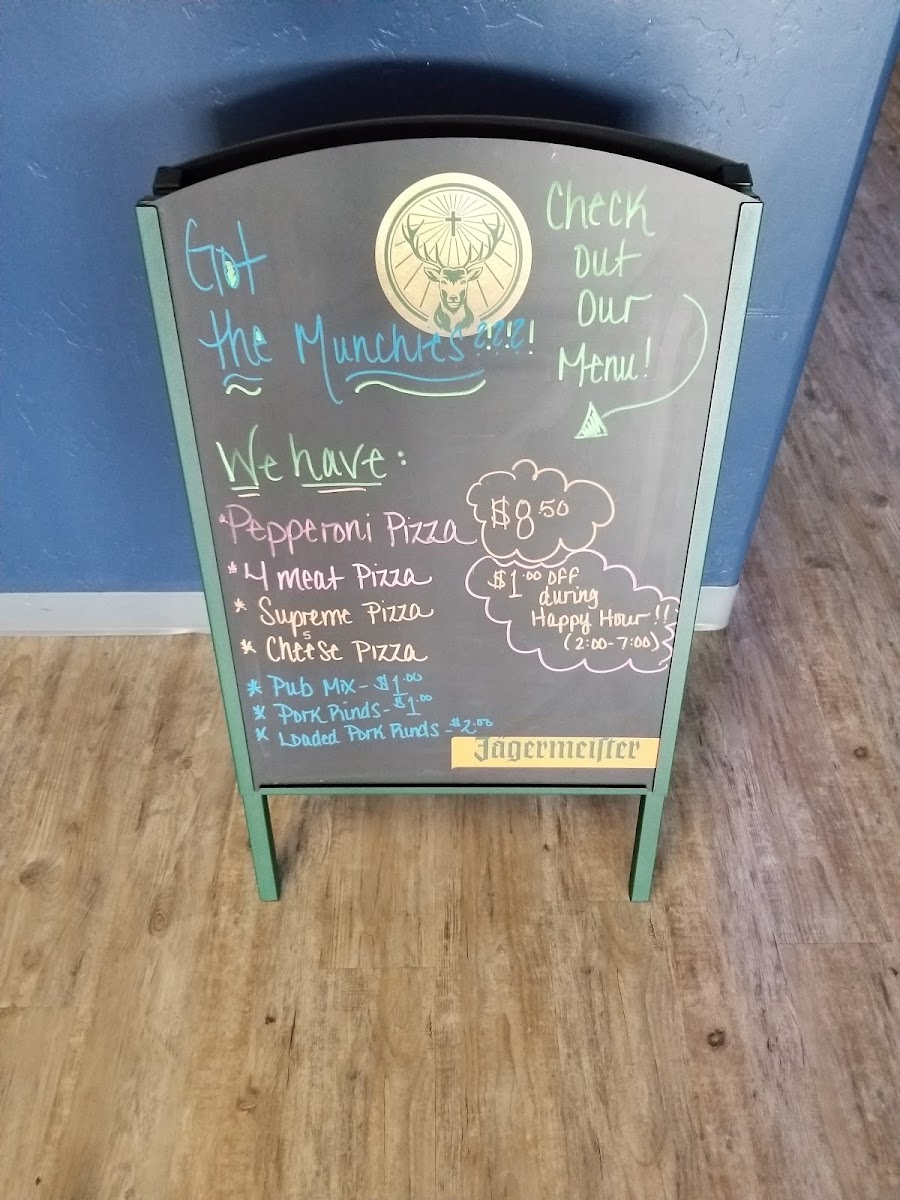 Got
the Munchies????!
Check
out
our
Menu!
We have:
*Pepperoni Pizza
$8.50
*4 meat Pizza
*Supreme Pizza
*5 Cheese Pizza
$1.00 off
during
Happy Hour!!
(2:00-7:00)
*Pub Mix-$1.00
*Pork Rinds-$1.00
*Loaded Pork Rinds-$2.00
Jägermeister